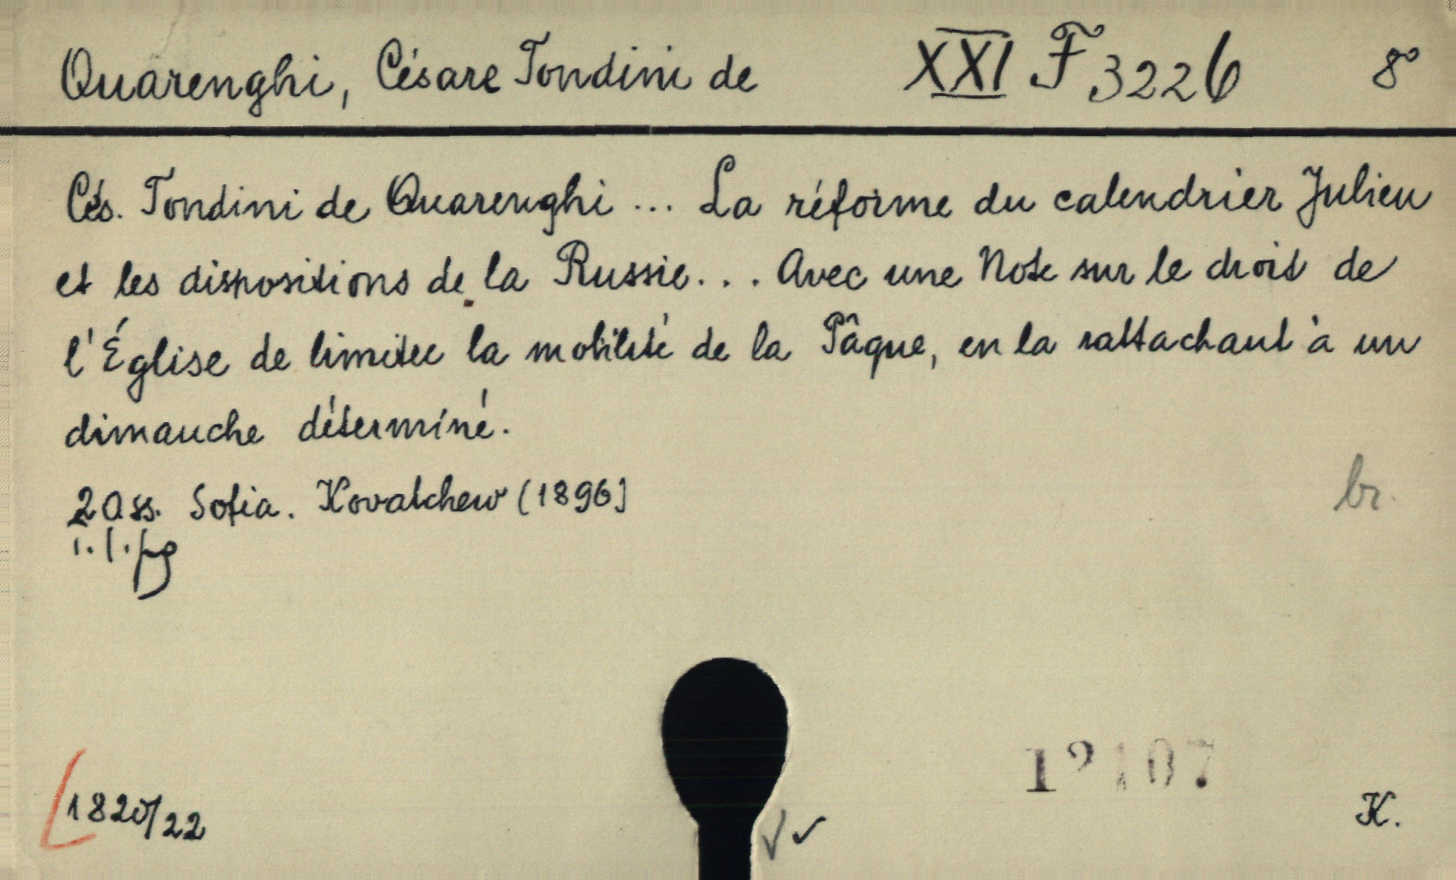 Quarenghi, Césare Tondini de XXI F 3226 8°
Cés. Tondini de Quarenghi ... La réforme du calendrier Julien
et les dispositions de la Russie... Avec une Note sur le droit de
l'Église de limiter la mobilité de la Pâque, en la rattachant à un
dimanche déterminé.
2 Ass. Sofia. Kovatchew (1896]
br.
12107
1820/22
K.